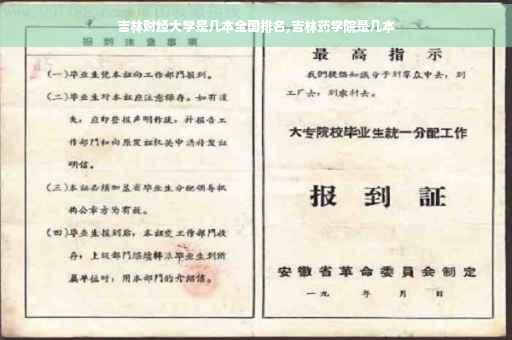 吉林财经大学是几本全国排名,吉林药学院是几本
报到注意事项
(一)毕业生凭本证向工作部门报到。
(二)毕业生对本证应注意保存。如有遗
失,应即登报声明作废,并报告工
作部门和向原发证机关申请补发证
明信。
(三)本证必须加盖省毕业生分配领导机
构公章方为有效。
(四)毕业生报到后,本证交工作部门收
存;上级部门继续转派毕业生到所
属单位时,用本部门的介绍信。
最高指示
我们提倡知识分子到群众中去,到
工厂去,到农村去。
大专院校毕业生統一分配工作
报到証
安徽省革命委員会制定
一九 年 月 日